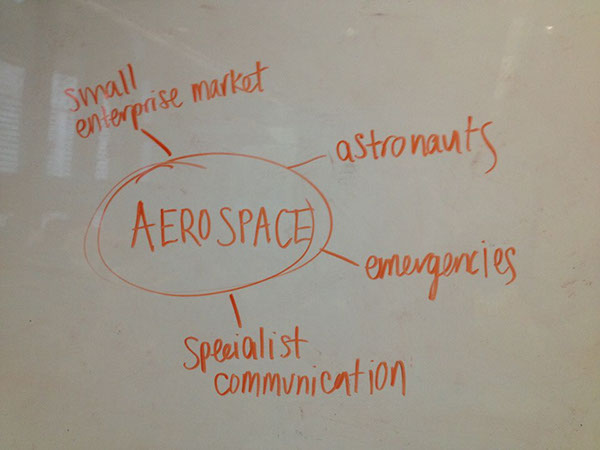 small
enterprise market
astronauts
AEROSPACE
emergencies
specialist
communication